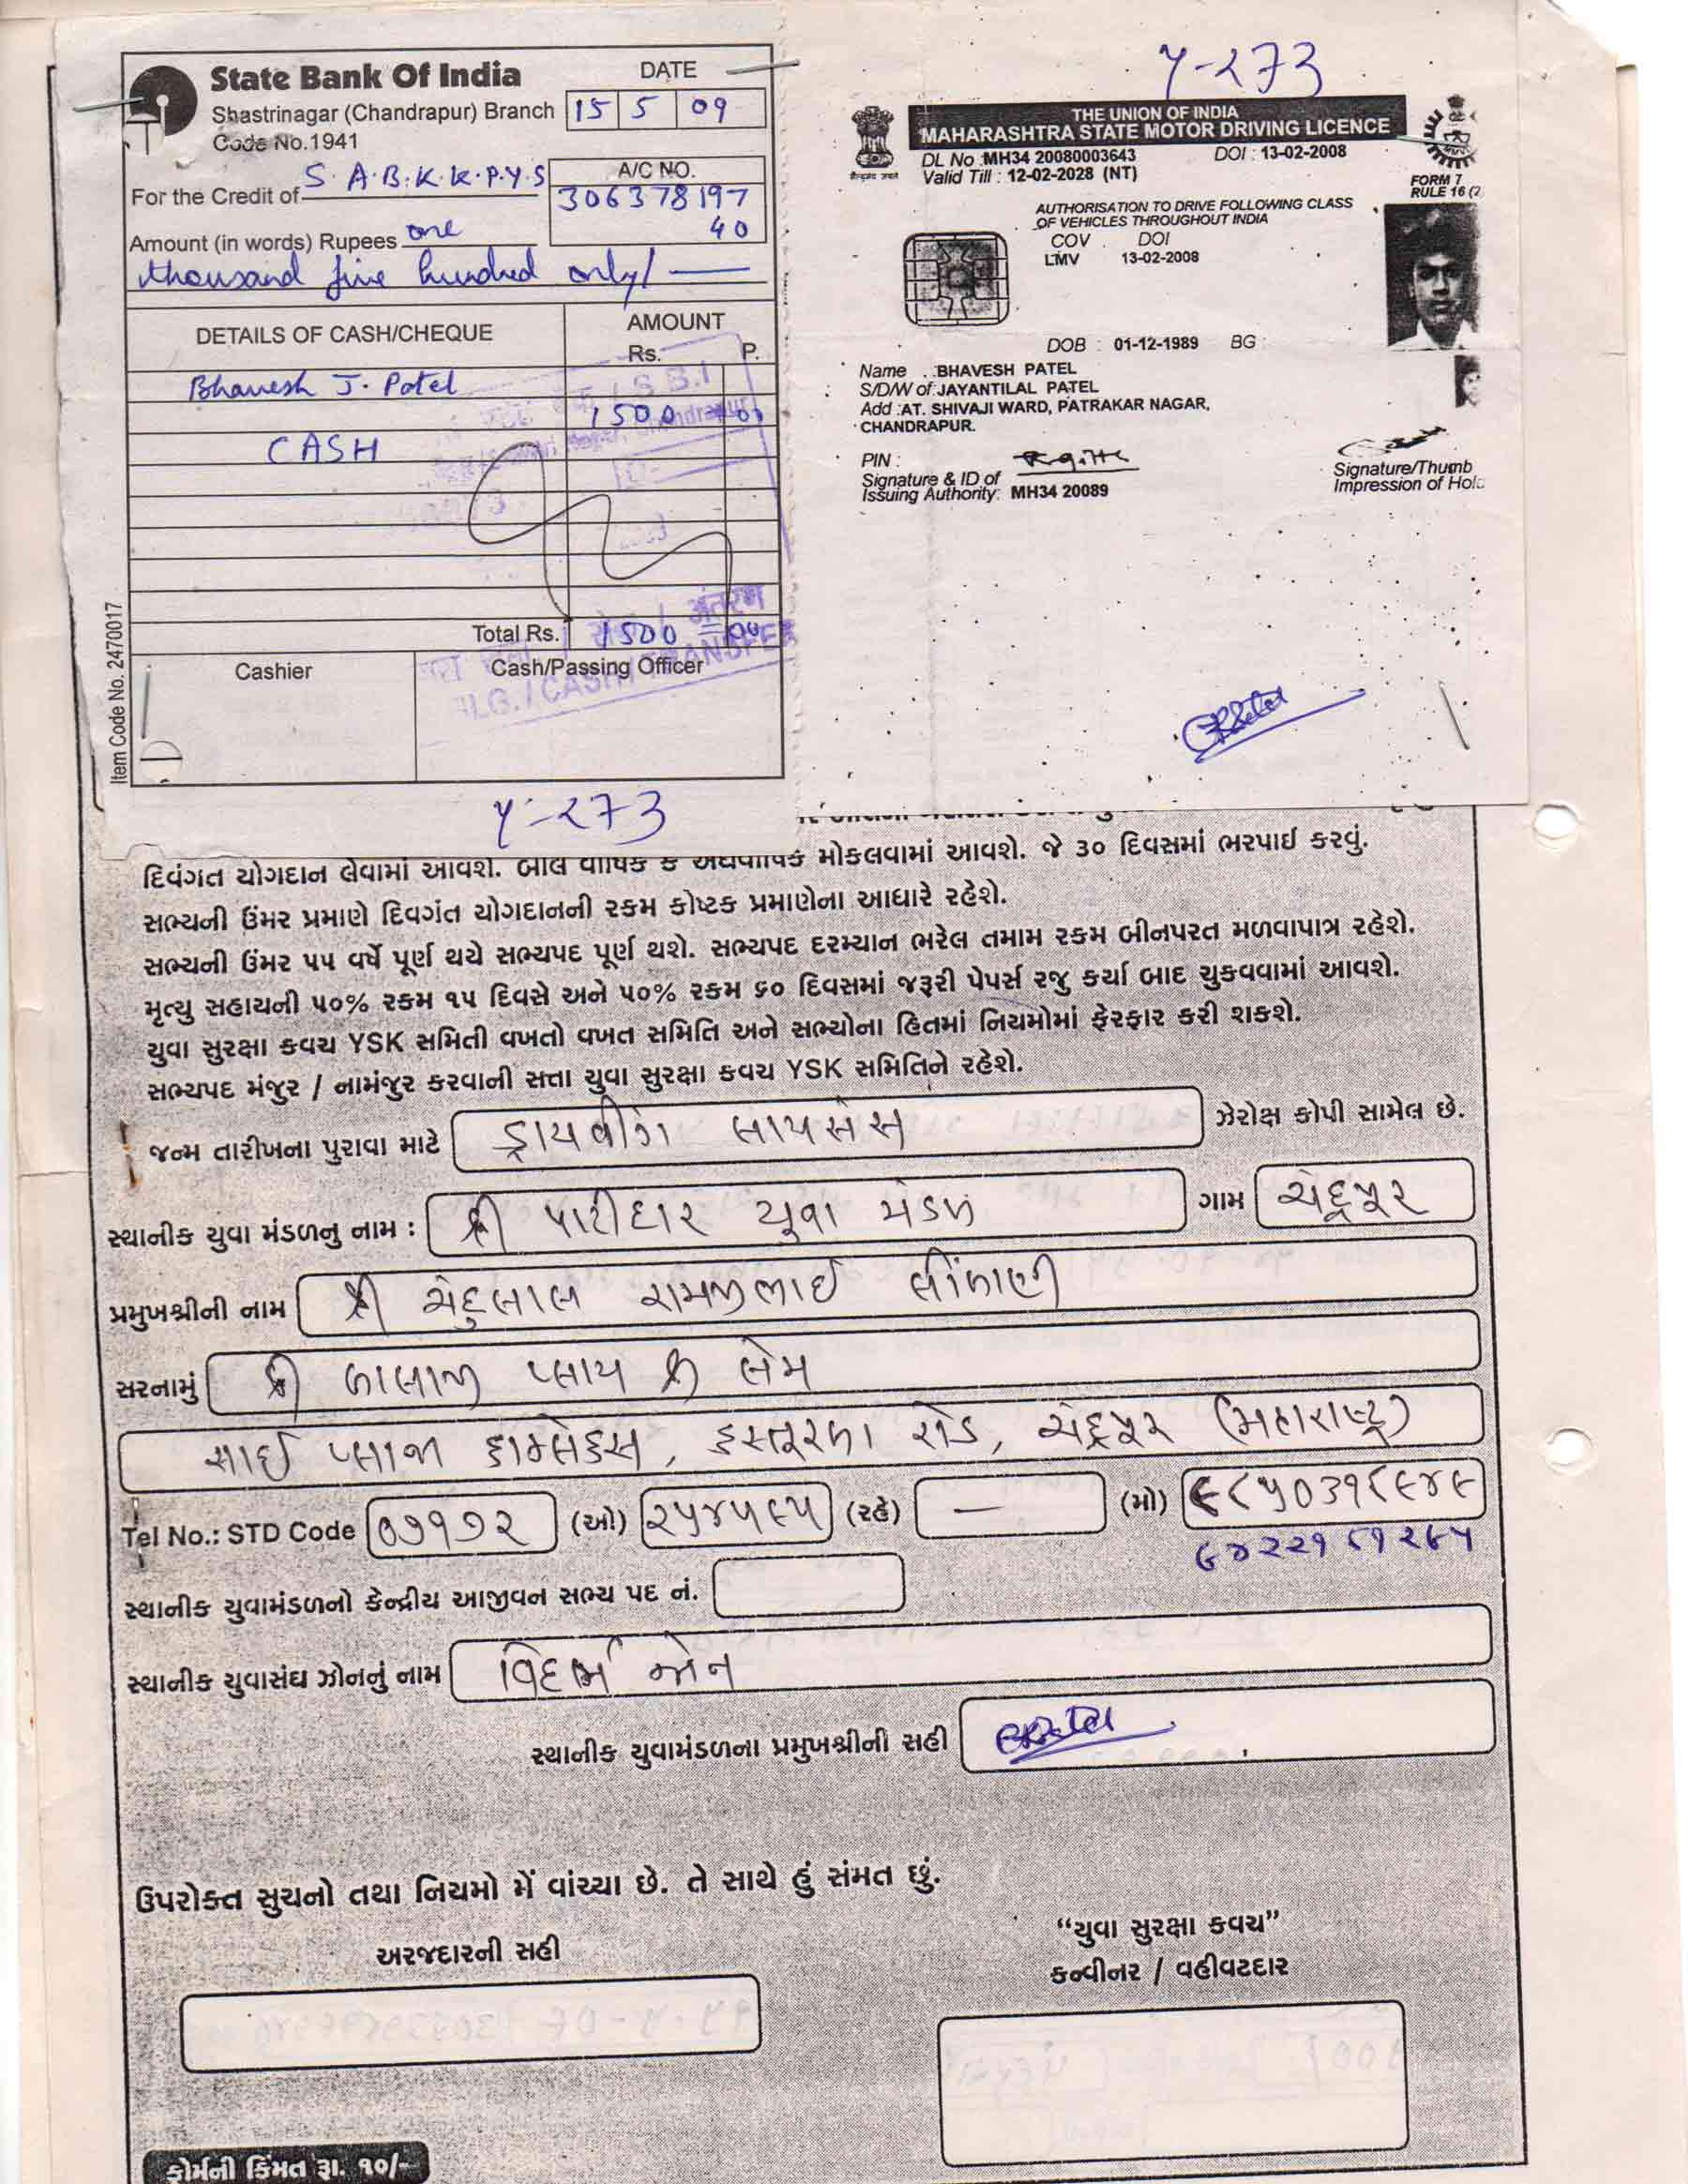 State Bank Of India
Shastrinagar (Chandrapur) Branch
Code No.1941
DATE
15 5 09
For the Credit of S.A.B.K.K.P.Y.S
A/C NO.
306378197
40
Amount (in words) Rupees one
thousand five hundred only/
DETAILS OF CASH/CHEQUE
AMOUNT
Rs. P.
Bhavesh J. Patel
1500 00
CASH
Total Rs. 1500 00
Cashier
Cash/Passing Officer
Item Code No. 2470017
Y-273
Y-273
THE UNION OF INDIA
MAHARASHTRA STATE MOTOR DRIVING LICENCE
DL No MH34 20080003643 DOI : 13-02-2008
Valid Till : 12-02-2028 (NT)
FORM 7
RULE 16 (2
AUTHORISATION TO DRIVE FOLLOWING CLASS
OF VEHICLES THROUGHOUT INDIA
COV DOI
LMV 13-02-2008
DOB : 01-12-1989 BG :
Name : BHAVESH PATEL
S/D/W of JAYANTILAL PATEL
Add :AT. SHIVAJI WARD, PATRAKAR NAGAR,
CHANDRAPUR.
PIN :
Signature & ID of
Issuing Authority: MH34 20089
Signature/Thumb
Impression of Hol
દિવંગત યોગદાન લેવામાં આવશે. બીલ વાર્ષિક કે અર્ધવાર્ષિક મોકલવામાં આવશે. જે ૩૦ દિવસમાં ભરપાઈ કરવું.
સભ્યની ઉંમર પ્રમાણે દિવગંત યોગદાનની રકમ કોષ્ટક પ્રમાણેના આધારે રહેશે.
સભ્યની ઉંમર ૫૫ વર્ષે પૂર્ણ થયે સભ્યપદ પૂર્ણ થશે. સભ્યપદ દરમ્યાન ભરેલ તમામ રકમ બીનપરત મળવાપાત્ર રહેશે.
મૃત્યુ સહાયની ૫૦% રકમ ૧૫ દિવસે અને ૫૦% રકમ ૬૦ દિવસમાં જરૂરી પેપર્સ રજુ કર્યા બાદ ચુકવવામાં આવશે.
યુવા સુરક્ષા કવચ YSK સમિતી વખતો વખત સમિતિ અને સભ્યોના હિતમાં નિયમોમાં ફેરફાર કરી શકશે.
સભ્યપદ મંજુર / નામંજુર કરવાની સત્તા યુવા સુરક્ષા કવચ YSK સમિતિને રહેશે.
જન્મ તારીખના પુરાવા માટે ડ્રાયવીંગ લાયસેંસ ઝેરોક્ષ કોપી સામેલ છે.
સ્થાનીક યુવા મંડળનુ નામ : શ્રી પાટીદાર યુવા મંડળ ગામ ચંદ્રપુર
પ્રમુખશ્રીની નામ શ્રી ચંદુલાલ રામજીભાઈ લીંબાણી
સરનામું શ્રી બાલાજી પ્લાય શ્રી લેમ
સાઈ પ્લાજા કોમ્લેક્સ, કસ્તૂરબા રોડ, ચંદ્રપુર (મહારાષ્ટ્ર)
Tel No.: STD Code ૦૭૧૭૨ (ઓ) ૨૫૪૫૯૫ (રહે) — (મો) ૯૮૫૦૩૧૮૯૪૯
૯૪૨૨૧૮૧૨૯૫
સ્થાનીક યુવામંડળનો કેન્દ્રીય આજીવન સભ્ય પદ નં.
સ્થાનીક યુવાસંઘ ઝોનનું નામ વિદર્ભ જોન
સ્થાનીક યુવામંડળના પ્રમુખશ્રીની સહી
ઉપરોક્ત સુચનો તથા નિયમો મેં વાંચ્યા છે. તે સાથે હું સંમત છું.
અરજદારની સહી
“યુવા સુરક્ષા કવચ”
કન્વીનર / વહીવટદાર
ફોર્મની કિંમત રૂા. ૧૦/-